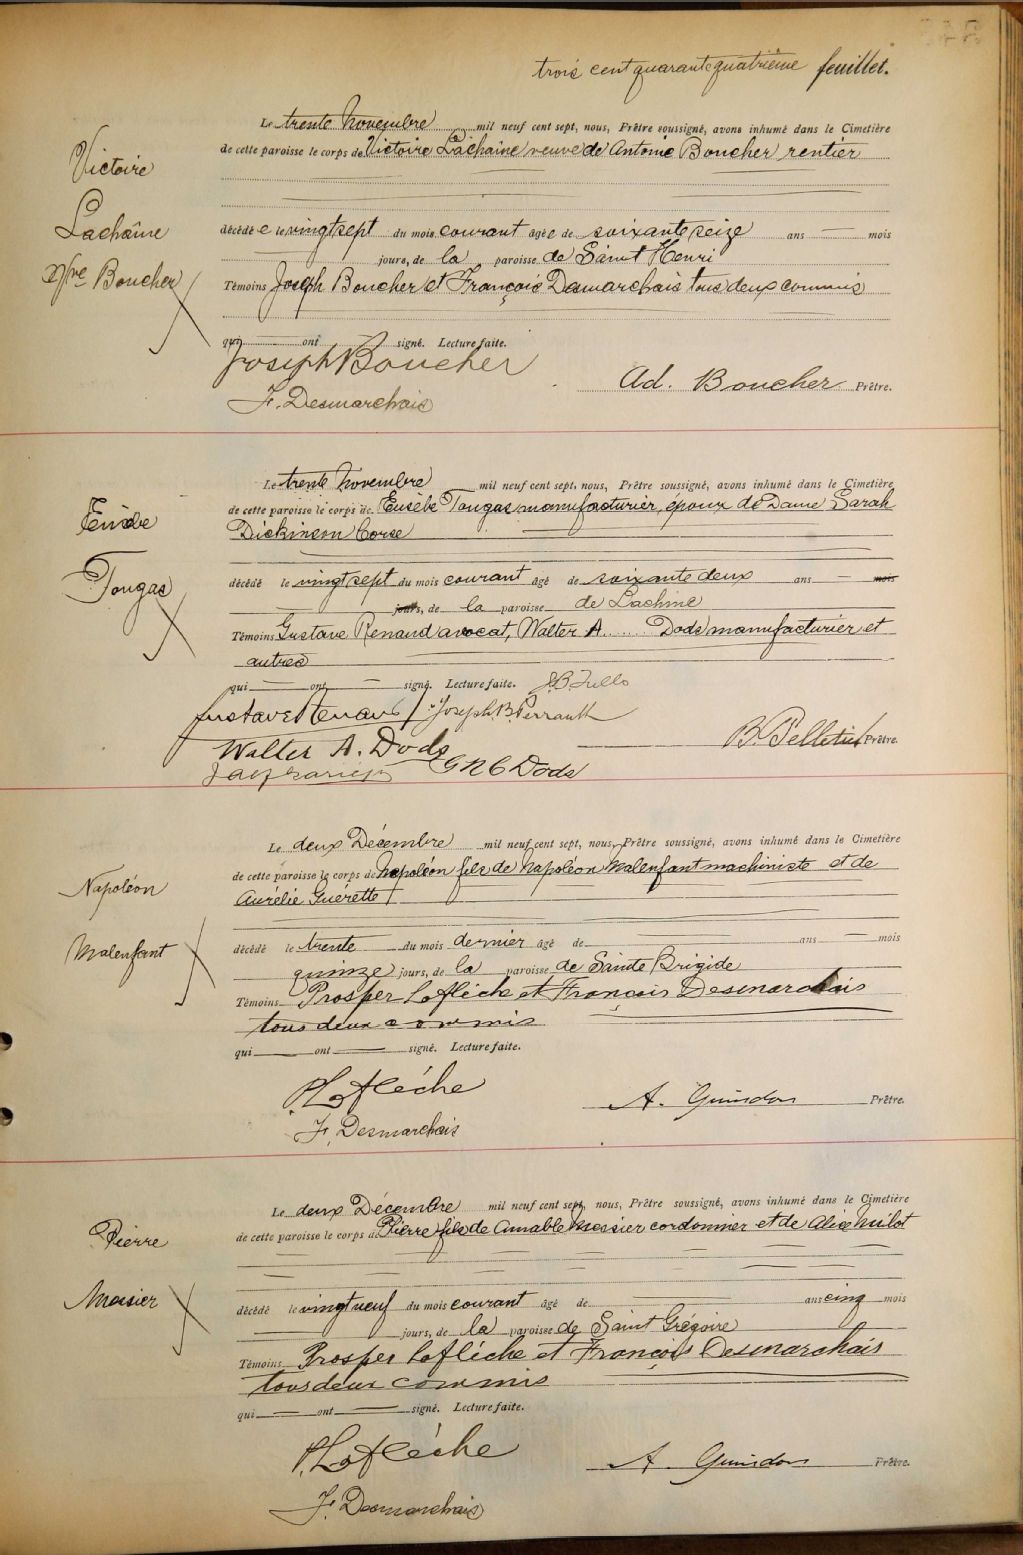 trois cent quarante quatrième feuillet.
Le trente Novembre mil neuf cent sept, nous, Prêtre soussigné, avons inhumé dans le Cimetière
de cette paroisse le corps de Victoire Lachaîne veuve de Antoine Boucher rentier
Victoire
Lachaîne
Vve Boucher
décédé e le vingt sept du mois courant âgé e de soixante seize ans — mois
jours, de la paroisse de Saint Henri
Témoins Joseph Boucher et François Desmarchais tous deux commis
qui ont signé. Lecture faite.
Joseph Boucher
Ad. Boucher Prêtre.
F. Desmarchais
Le trente Novembre mil neuf cent sept, nous, Prêtre soussigné, avons inhumé dans le Cimetière
de cette paroisse le corps de Eusèbe Tougas manufacturier, époux de Dame Sarah
Dickinson Corse
Eusèbe
Tougas
décédé le vingt sept du mois courant âgé de soixante deux ans — mois
jours, de la paroisse de Lachine
Témoins Gustave Renaud avocat, Walter A. Dods manufacturier et
autres
qui — ont — signé. Lecture faite. J.B. Tullo
Gustave Renaud Joseph B. Perrault
B. Pelletier Prêtre.
Walter A. Dods
G R C Dods
Le deux Décembre mil neuf cent sept, nous, Prêtre soussigné, avons inhumé dans le Cimetière
de cette paroisse le corps de Napoléon fils de Napoléon Malenfant machiniste et de
Aurélie Guérette
Napoléon
Malenfant
décédé le trente du mois dernier âgé de ans — mois
quinze jours, de la paroisse de Sainte Brigide
Témoins Prosper Laflèche et François Desmarchais
tous deux commis
qui — ont — signé. Lecture faite.
P. Laflèche
A. Guindon Prêtre.
F. Desmarchais
Le deux Décembre mil neuf cent sept, nous, Prêtre soussigné, avons inhumé dans le Cimetière
de cette paroisse le corps de Pierre fils de Amable Messier cordonnier et de Alice Milot
Pierre
Messier
décédé le vingt neuf du mois courant âgé de ans cinq mois
jours, de la paroisse de Saint Grégoire
Témoins Prosper Laflèche et François Desmarchais
tous deux commis
qui — ont — signé. Lecture faite.
P. Laflèche
A. Guindon Prêtre.
F. Desmarchais